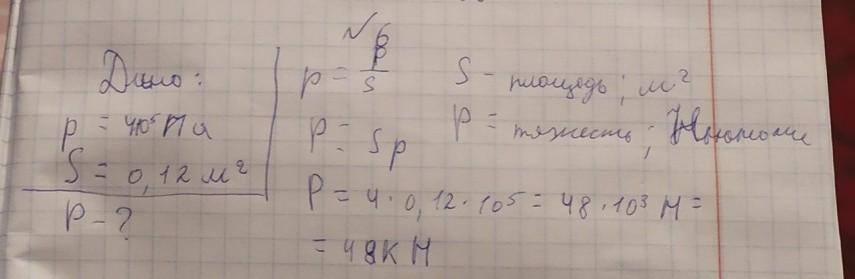 √6
Дано:
p = 4·10⁵ Па
S = 0,12 м²
P - ?
p = P/S    S - площадь; м²
P = Sp    P = тяжесть; Ньютоны
P = 4·0,12·10⁵ = 48·10³ Н =
= 48кН